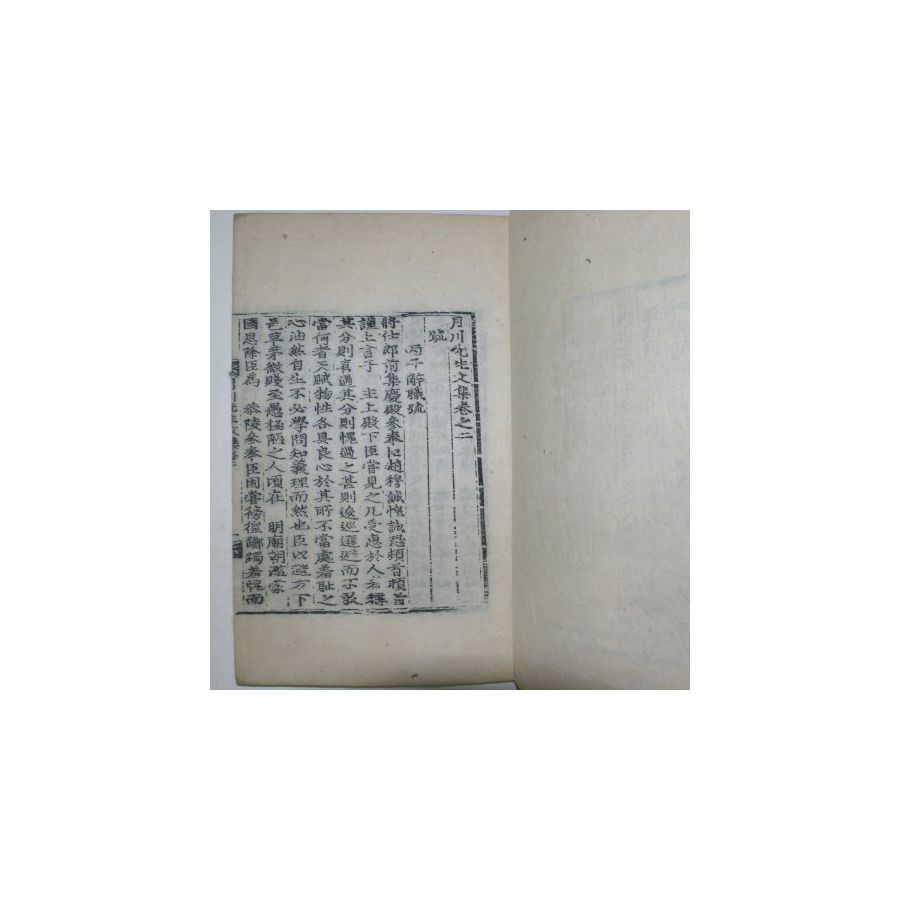 月川先生文集卷之二
疏
丙子辭職疏
將仕郎前集慶殿參奉臣趙穆誠惶誠恐頓首頓首
謹上言于 主上殿下臣嘗見之凡受惠於人者稱
其分則喜過其分則愧過之甚則逡巡遜避而不敢
當何者天賦物性各具良心於其所不當處羞恥之
心油然自生不必學問知義理而然也臣以遐方下
邑草茅微賤至愚極陋之人頃在 明廟朝濫蒙
國恩除臣爲 恭陵參奉臣固嘗彷徨躑躅羞愧而
月川先生文集卷二